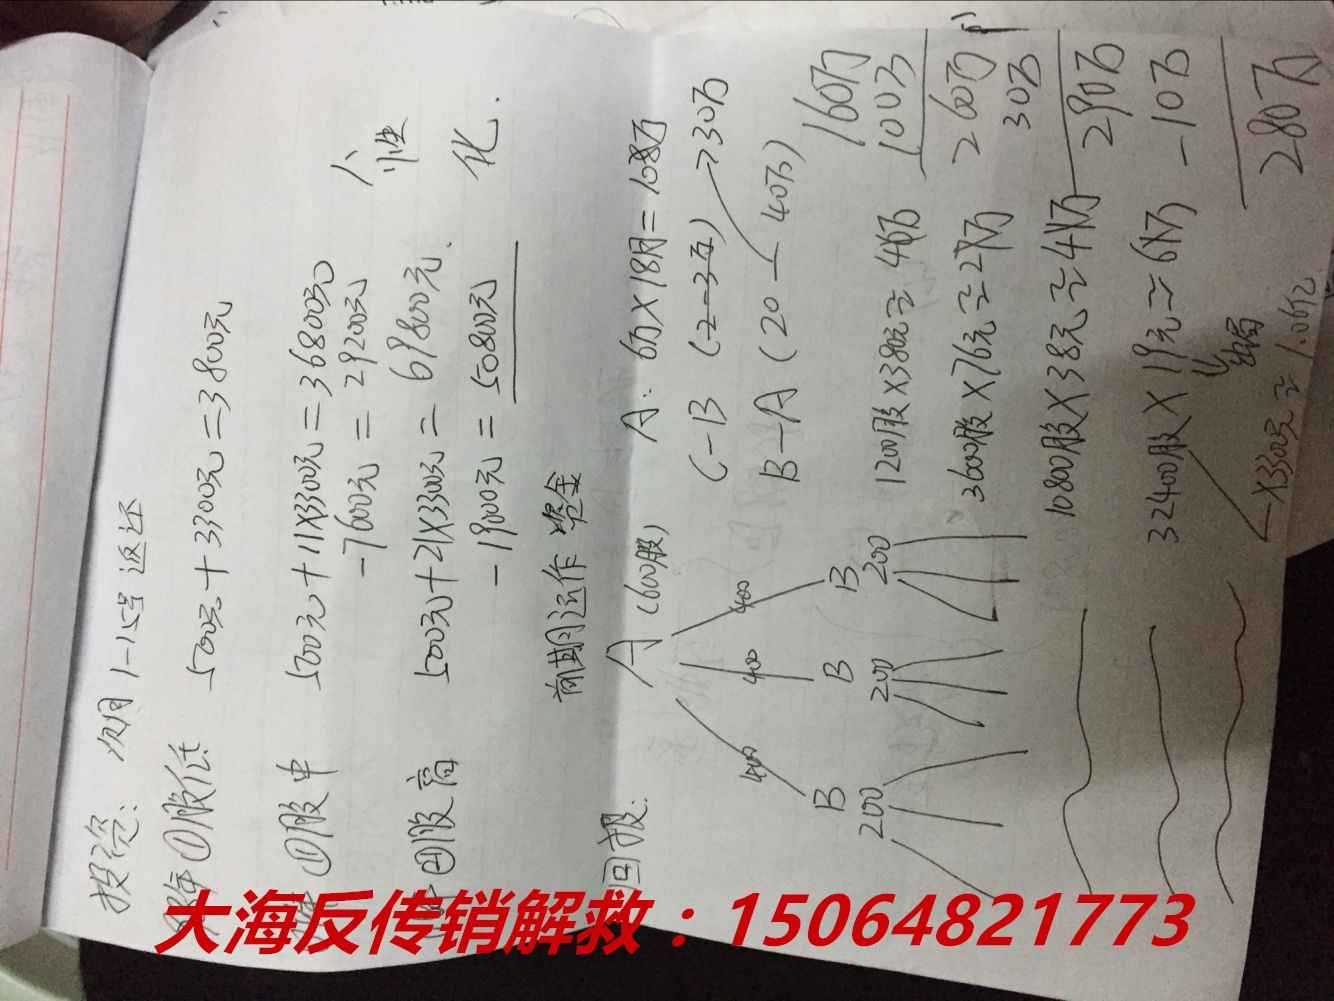 投资: 次月1-15号返还
①股低 500元+3300元=3800元
①股中 500元+11×3300元=36800元
-7600元=29200元
②①股高 500元+21×3300元=69800元.
-19000元=50800元
个
性
化.
前期运作资金
回报:
A (600股)
400 400 400
B B B
200 200 200
A: 6万×18月=108万
C-B (2-3万)→30万
B-A (20-40万)
1200股×380元≈46万
3600股×76元≈27万
10800股×38元≈41万
32400股×19元≈61万
出局
×3300元≈1.06亿
160万
100万
260万
30万
290万
-10万
280万
大海反传销解救：15064821773